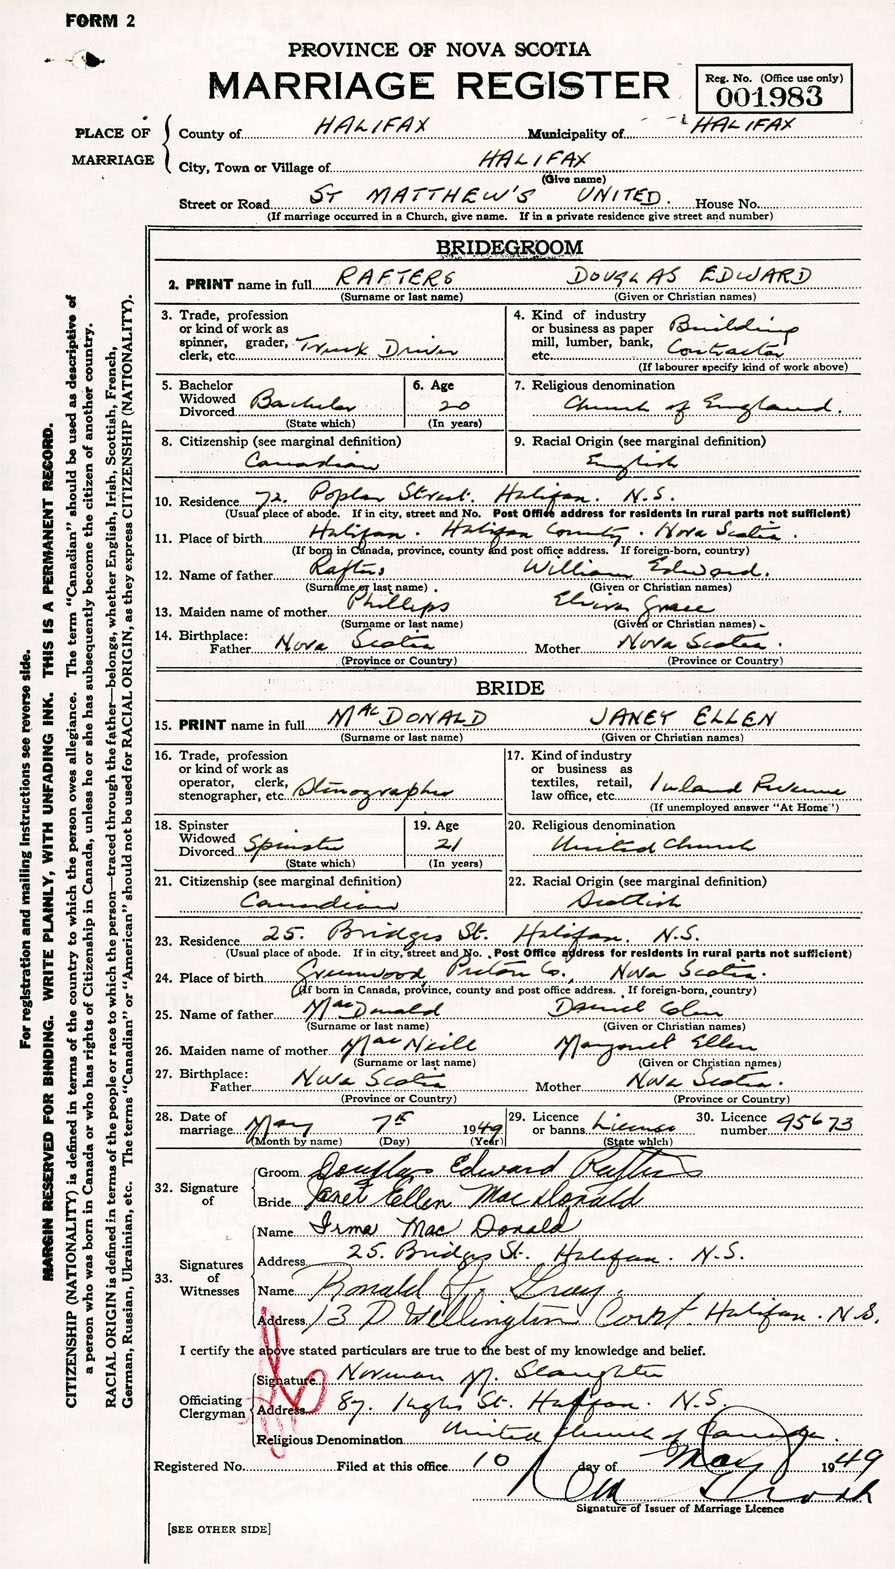 FORM 2
PROVINCE OF NOVA SCOTIA
MARRIAGE REGISTER
Reg. No. (Office use only)
001983
PLACE OF MARRIAGE
County of HALIFAX Municipality of HALIFAX
City, Town or Village of HALIFAX
(Give name)
Street or Road ST MATTHEW'S UNITED. House No.
(If marriage occurred in a Church, give name. If in a private residence give street and number)
BRIDEGROOM
2. PRINT name in full RAFTERS DOUGLAS EDWARD
(Surname or last name) (Given or Christian names)
3. Trade, profession or kind of work as spinner, grader, clerk, etc. Truck Driver
4. Kind of industry or business as paper mill, lumber, bank, etc. Building Contractor
(If labourer specify kind of work above)
5. Bachelor Widowed Divorced Bachelor
(State which)
6. Age 20
(In years)
7. Religious denomination
Church of England.
8. Citizenship (see marginal definition)
Canadian
9. Racial Origin (see marginal definition)
English
10. Residence 72. Poplar Street. Halifax. N.S.
(Usual place of abode. If in city, street and No. Post Office address for residents in rural parts not sufficient)
11. Place of birth Halifax. Halifax County. Nova Scotia.
(If born in Canada, province, county and post office address. If foreign-born, country)
12. Name of father Rafters William Edward.
(Surname or last name) (Given or Christian names)
13. Maiden name of mother Phillips Grace
(Surname or last name) (Given or Christian names)
14. Birthplace:
Father Nova Scotia Mother Nova Scotia.
(Province or Country) (Province or Country)
BRIDE
15. PRINT name in full MacDONALD JANET ELLEN
(Surname or last name) (Given or Christian names)
16. Trade, profession or kind of work as operator, clerk, stenographer, etc. Stenographer
17. Kind of industry or business as textiles, retail, law office, etc. Inland Revenue
(If unemployed answer "At Home")
18. Spinster Widowed Divorced Spinster
(State which)
19. Age 21
(In years)
20. Religious denomination
United Church
21. Citizenship (see marginal definition)
Canadian
22. Racial Origin (see marginal definition)
Scottish
23. Residence 25. Bridges St. Halifax. N.S.
(Usual place of abode. If in city, street and No. Post Office address for residents in rural parts not sufficient)
24. Place of birth Greenwood Pictou Co., Nova Scotia.
(If born in Canada, province, county and post office address. If foreign-born, country)
25. Name of father MacDonald Daniel
(Surname or last name) (Given or Christian names)
26. Maiden name of mother MacNeill Margaret Ellen
(Surname or last name) (Given or Christian names)
27. Birthplace:
Father Nova Scotia Mother Nova Scotia.
(Province or Country) (Province or Country)
28. Date of marriage May 7th 1949
(Month by name) (Day) (Year)
29. Licence or banns License
(State which)
30. Licence number 95673
32. Signature of
Groom Douglas Edward Rafters
Bride Janet Ellen MacDonald
33. Signatures of Witnesses
Name Irma MacDonald
Address 25. Bridges St. Halifax. N.S.
Name Ronald J. Gray.
Address 13 D Wellington Court Halifax. N.S.
I certify the above stated particulars are true to the best of my knowledge and belief.
Officiating Clergyman
Signature Norman M. Slaughter
Address 87. St. Halifax. N.S.
Religious Denomination United Church of Canada.
Registered No. Filed at this office 10 day of May 1949
Signature of Issuer of Marriage Licence
[SEE OTHER SIDE]
For registration and mailing instructions see reverse side.
MARGIN RESERVED FOR BINDING. WRITE PLAINLY, WITH UNFADING INK. THIS IS A PERMANENT RECORD.
CITIZENSHIP (NATIONALITY) is defined in terms of the country to which the person owes allegiance. The term "Canadian" should be used as descriptive of
a person who was born in Canada or who has rights of Citizenship in Canada, unless he or she has subsequently become the citizen of another country.
RACIAL ORIGIN is defined in terms of the people or race to which the person—traced through the father—belongs, whether English, Irish, Scottish, French,
German, Russian, Ukrainian, etc. The terms "Canadian" or "American" should not be used for RACIAL ORIGIN, as they express CITIZENSHIP (NATIONALITY).